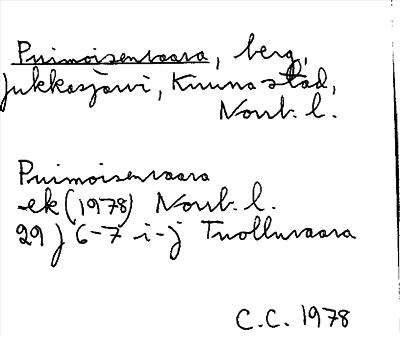 Puimoisenvaara, berg,
Jukkasjärvi, Kiruna stad,
Norrb. l.
Puimoisenvaara
-ek (1978) Norrb. l.
29 J 6-7 i-j Tuolluvaara
C.C. 1978